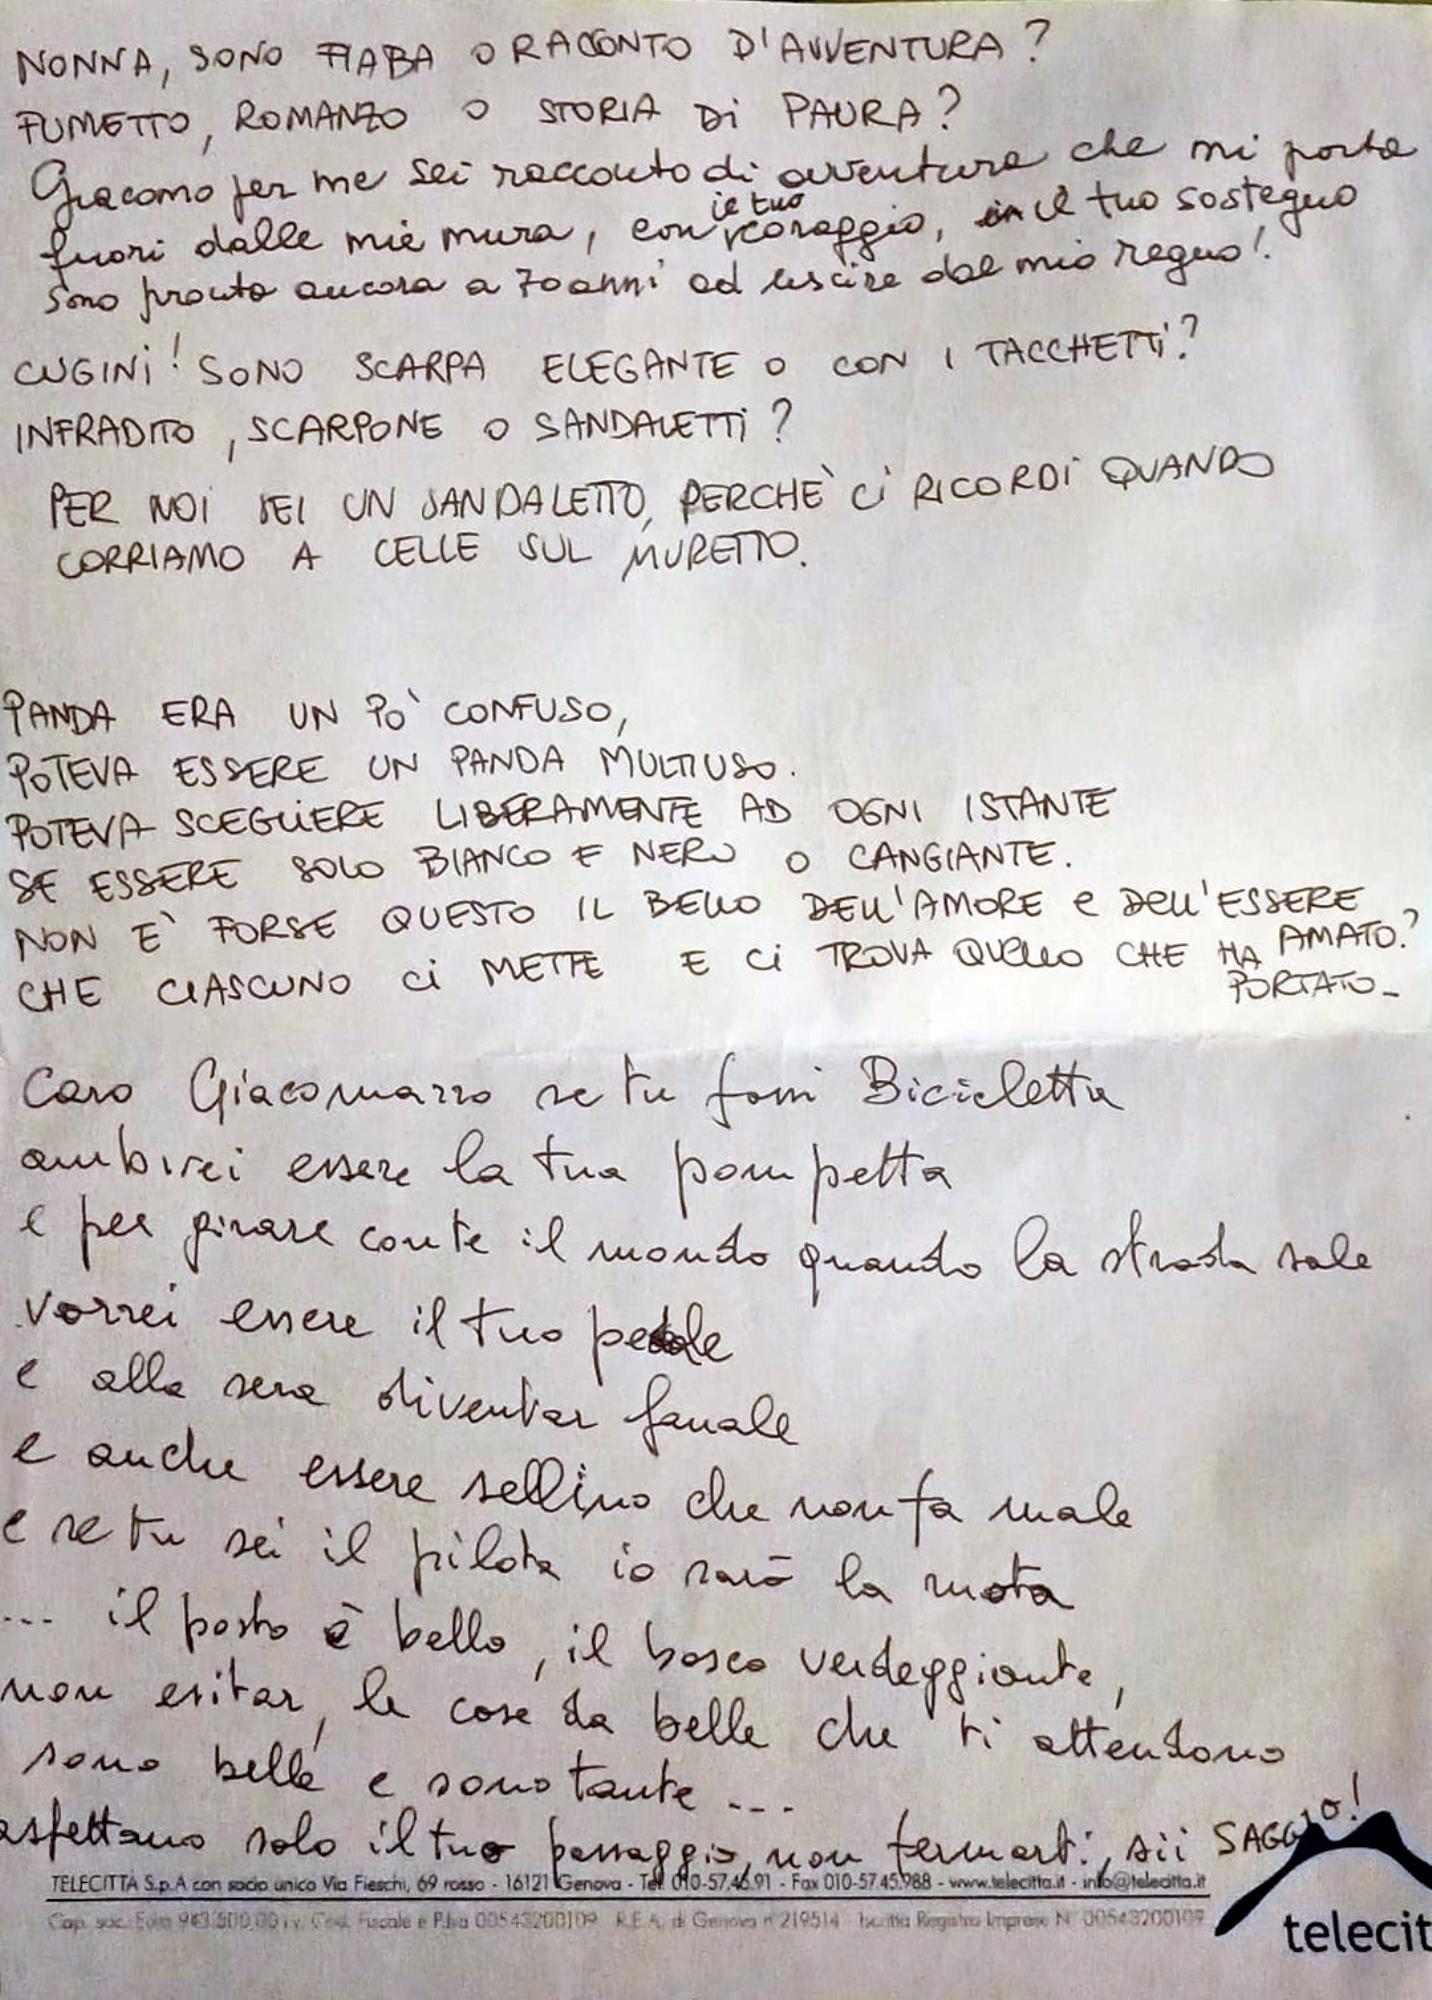 NONNA, SONO FIABA O RACCONTO D'AVVENTURA?
FUMETTO, ROMANZO O STORIA Di PAURA?
Giacomo per me sei racconto di avventura che mi porta
fuori dalle mie mura, con il tuo coraggio, il tuo sostegno
sono pronta ancora a 70 anni ad uscire dal mio regno!
CUGINi! SONO SCARPA ELEGANTE O CON I TACCHETTi?
INFRADITO, SCARPONE O SANDALETTi?
PER NOI SEI UN SANDALETTO, PERCHÈ Ci RICORDI QUANDO
CORRIAMO A CELLE SUL MURETTO.
PANDA ERA UN PO' CONFUSO,
POTEVA ESSERE UN PANDA MULTIUSO.
POTEVA SCEGLIERE LIBERAMENTE AD OGNI ISTANTE
SE ESSERE SOLO BIANCO E NERO O CANGIANTE.
NON E' FORSE QUESTO IL BELLO DELL'AMORE e DELL'ESSERE AMATO?
CHE CIASCUNO Ci METTE E Ci TROVA QUELLO CHE HA PORTATO_
Caro Giacomazzo se tu fossi Bicicletta
ambirei essere la tua pompetta
e per girare conte il mondo quando la strada sale
vorrei essere il tuo pedale
e alla sera diventar fanale
e anche essere sellino che non fa male
e se tu sei il pilota io sarò la ruota
... il posto è bello, il bosco verdeggiante,
non esitar, le cose da belle che ti attendono
sono belle e sono tante ...
aspettano solo il tuo passaggio, non fermarti, sii SAGGIO!
TELECITTÀ S.p.A con socio unico Via Fieschi, 69 rosso - 16121 Genova - Tel. 010-57.45.91 - Fax 010-57.45.988 - www.telecitta.it - info@telecitta.it
Cap. soc. Euro 943.500,00 i.v. Cod. Fiscale e P.Iva 00543200109 R.E.A. di Genova n°219514 Iscritta Registro Imprese N° 00543200109
telecit